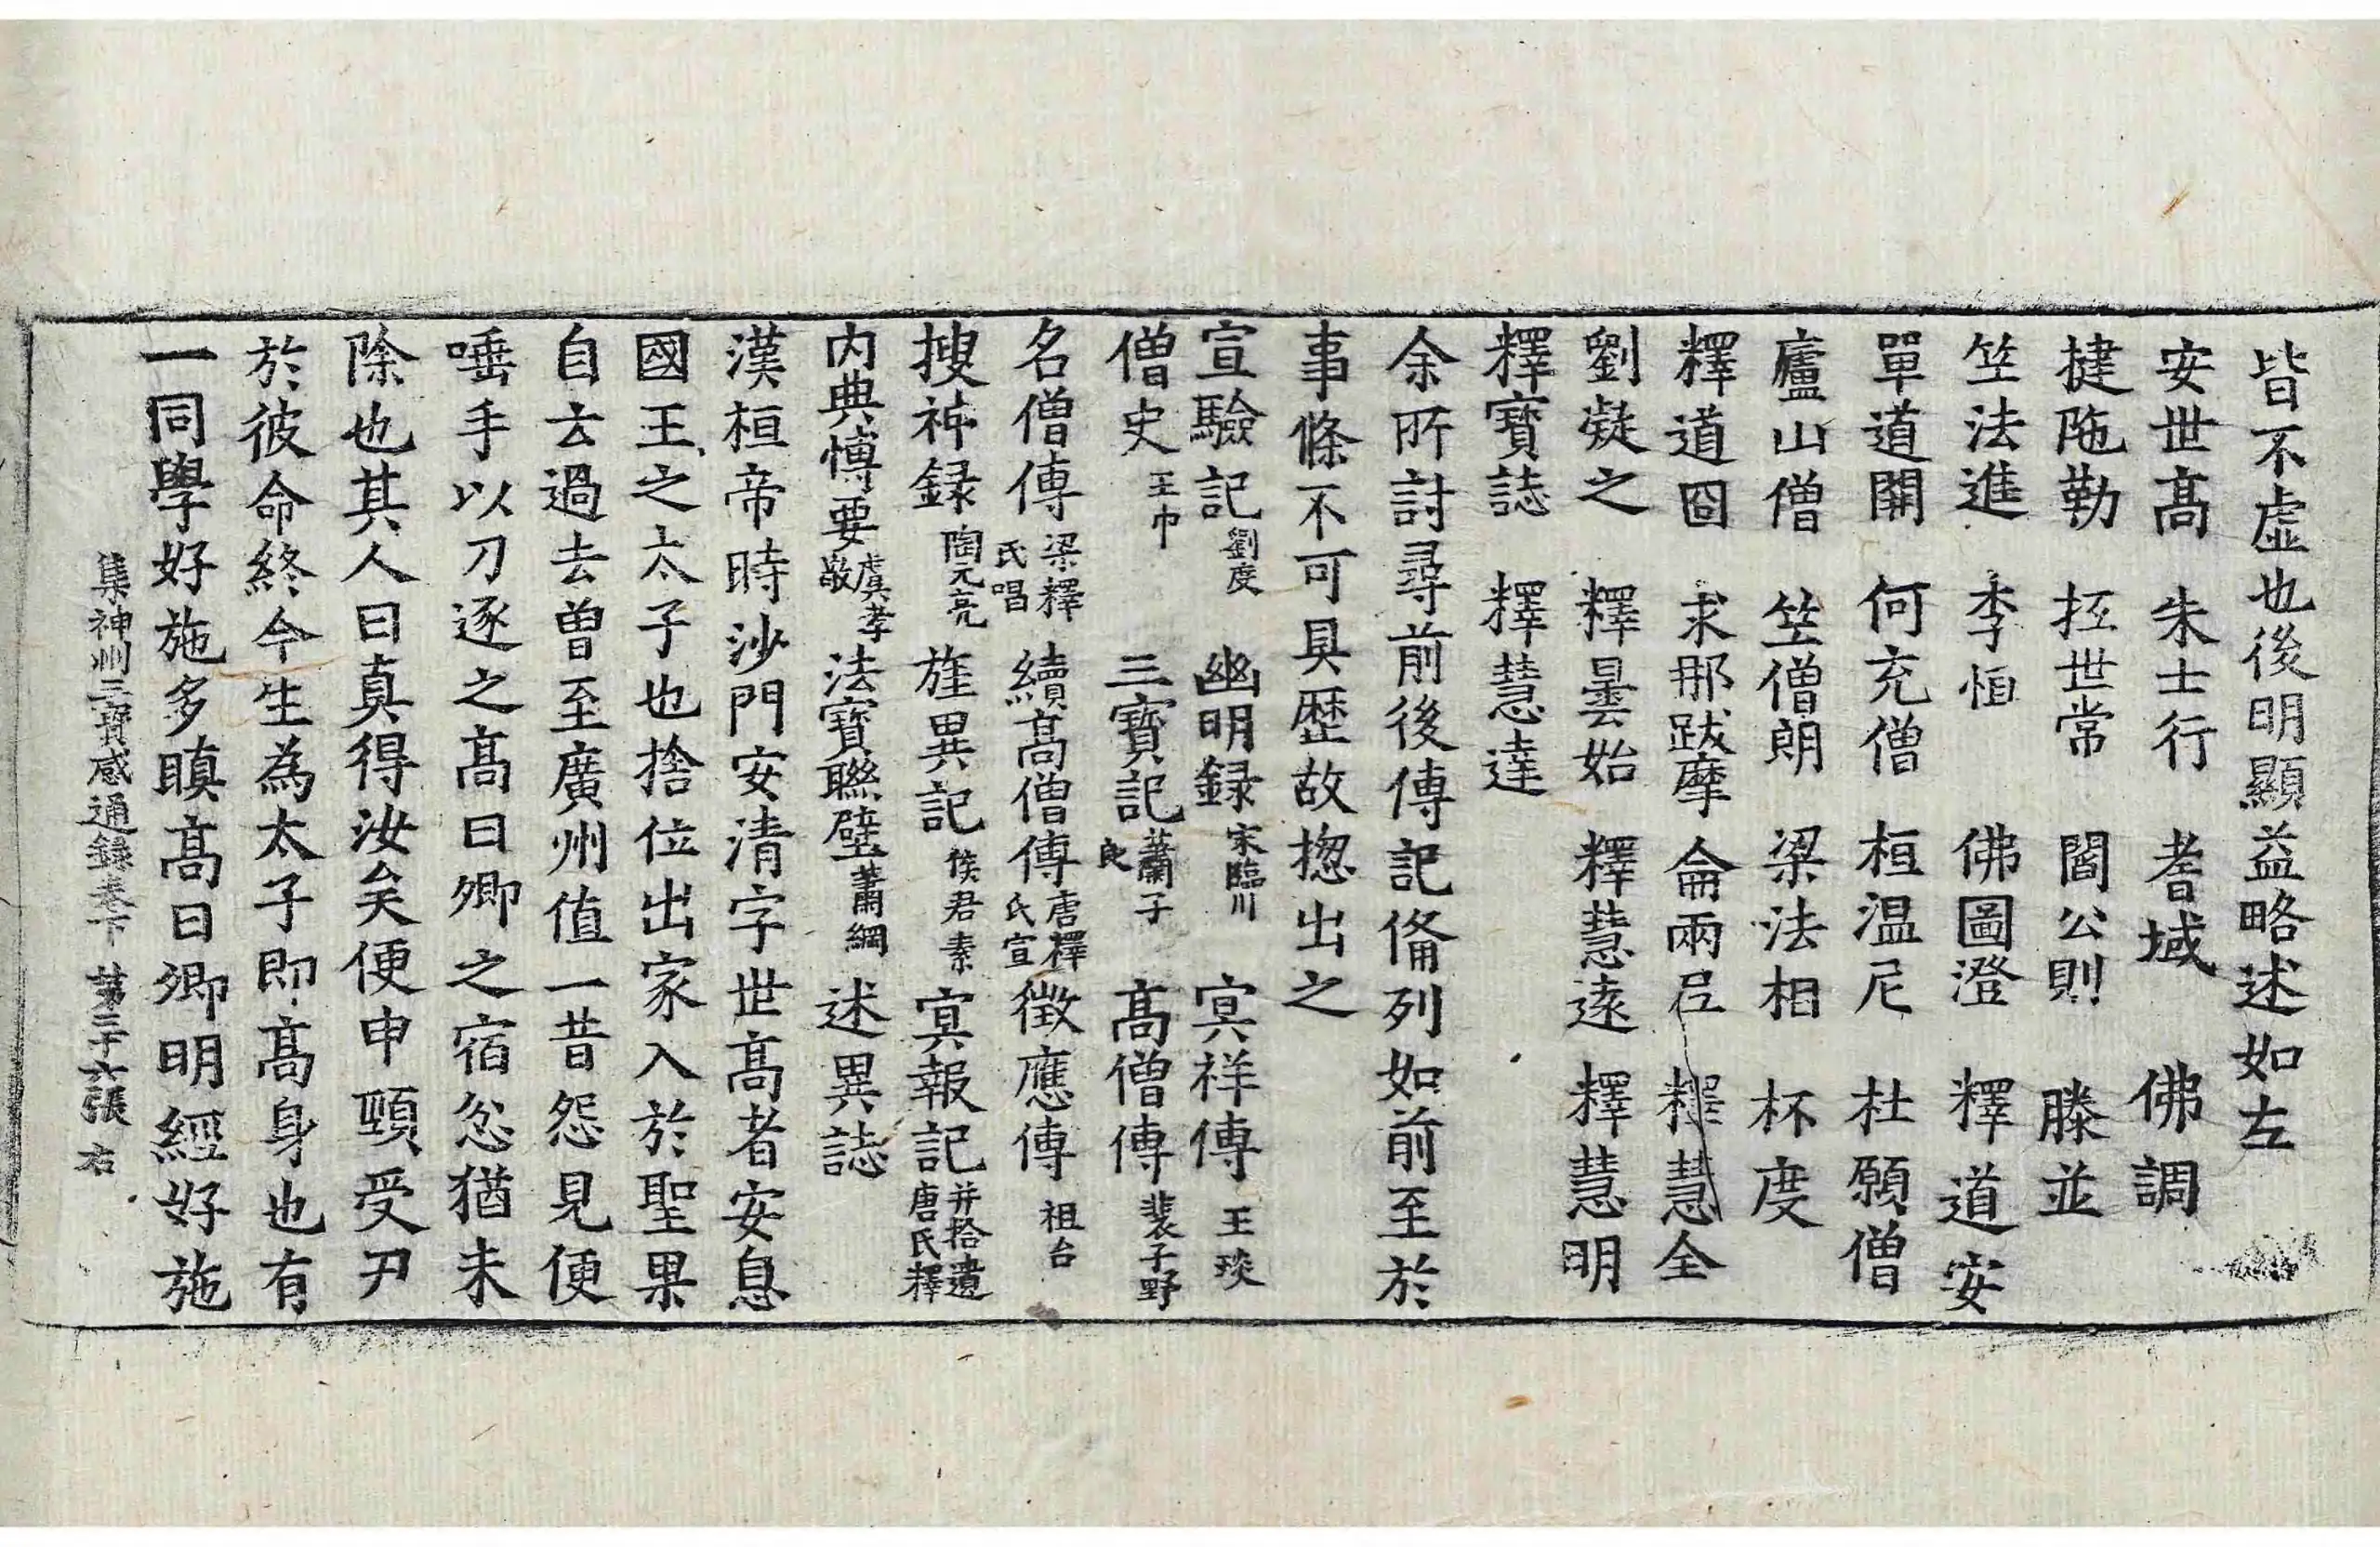 皆不虛也後明顯益略述如左
安世高　朱士行　耆域　佛調
揵陁勒　抂世常　閻公則　滕並
竺法進　李恒　佛圖澄　釋道安
單道開　何充僧　桓溫尼　杜願僧
廬山僧　竺僧朗　梁法相　杯度
釋道冏　求那跋摩　侖兩呂　釋慧全
劉凝之　釋曇始　釋慧遠　釋慧明
釋寶誌　釋慧達
余所討尋前後傳記俻列如前至於
事條不可具歷故揔出之
宣驗記劉度　幽明録宋臨川　冥祥傳王琰
僧史王巾　三寶記蕭子良　高僧傳裴子野
名僧傳梁釋氏唱　續高僧傳唐釋氏宣　徵應傳祖台
搜神録陶元亮　旌異記侯君素　冥報記并拾遺唐氏釋
内典博要虞孝敬　法寶聯璧蕭綱　述異誌
漢桓帝時沙門安清字世高者安息
國王之太子也捨位出家入於聖果
自云過去曾至廣州值一昔怨見便
唾手以刀逐之高曰卿之宿忿猶未
除也其人曰真得汝矣便申頸受刃
於彼命終今生為太子即高身也有
一同學好施多瞋高曰卿明經好施
集神州三寶感通録卷下　第三十六張　右